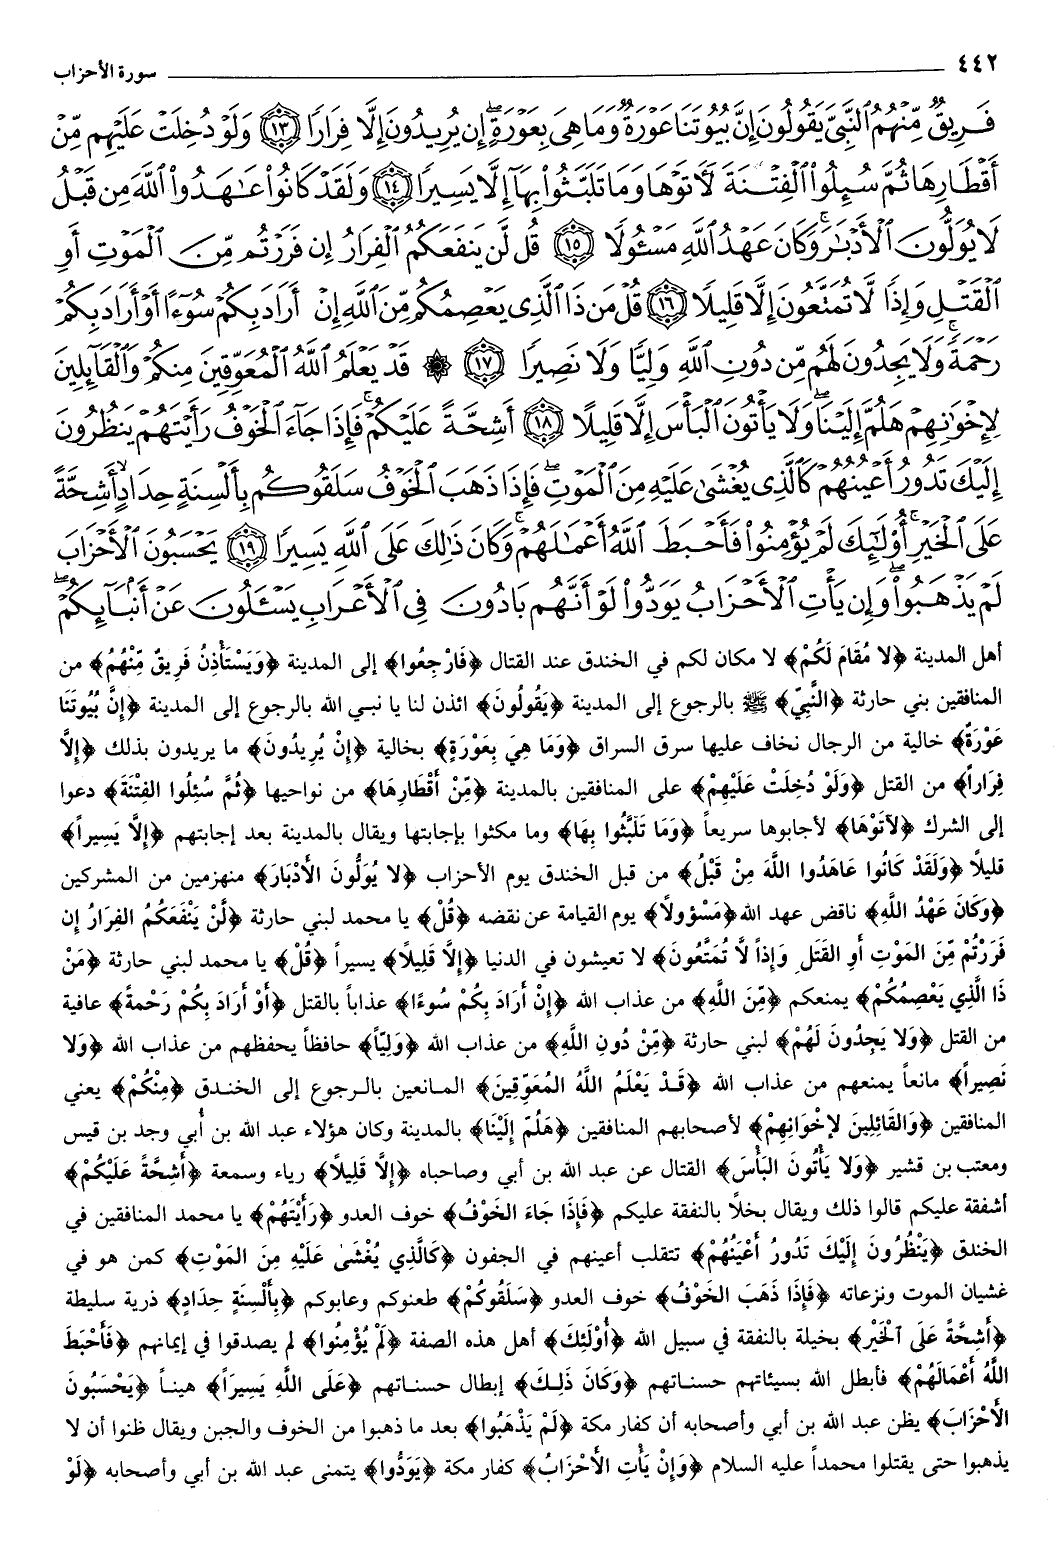 ٤٤٢ سورة الأحزاب
فَرِيقٌ مِّنْهُمُ النَّبِيَّ يَقُولُونَ إِنَّ بُيُوتَنَا عَوْرَةٌ وَمَا هِىَ بِعَوْرَةٍ إِن يُرِيدُونَ إِلَّا فِرَارًا ١٣ وَلَوْ دُخِلَتْ عَلَيْهِم مِّنْ
أَقْطَارِهَا ثُمَّ سُئِلُواْ الْفِتْنَةَ لَأَتَوْهَا وَمَا تَلَبَّثُواْ بِهَآ إِلَّا يَسِيرًا ١٤ وَلَقَدْ كَانُواْ عَٰهَدُواْ اللَّهَ مِن قَبْلُ
لَا يُوَلُّونَ الْأَدْبَٰرَ وَكَانَ عَهْدُ اللَّهِ مَسْئُولًا ١٥ قُل لَّن يَنفَعَكُمُ الْفِرَارُ إِن فَرَرْتُم مِّنَ الْمَوْتِ أَوِ
الْقَتْلِ وَإِذًا لَّا تُمَتَّعُونَ إِلَّا قَلِيلًا ١٦ قُلْ مَن ذَا الَّذِى يَعْصِمُكُم مِّنَ اللَّهِ إِنْ أَرَادَ بِكُمْ سُوٓءًا أَوْ أَرَادَ بِكُمْ
رَحْمَةً وَلَا يَجِدُونَ لَهُم مِّن دُونِ اللَّهِ وَلِيًّا وَلَا نَصِيرًا ١٧ ۞ قَدْ يَعْلَمُ اللَّهُ الْمُعَوِّقِينَ مِنكُمْ وَالْقَآئِلِينَ
لِإِخْوَٰنِهِمْ هَلُمَّ إِلَيْنَا وَلَا يَأْتُونَ الْبَأْسَ إِلَّا قَلِيلًا ١٨ أَشِحَّةً عَلَيْكُمْ فَإِذَا جَآءَ الْخَوْفُ رَأَيْتَهُمْ يَنظُرُونَ
إِلَيْكَ تَدُورُ أَعْيُنُهُمْ كَالَّذِى يُغْشَىٰ عَلَيْهِ مِنَ الْمَوْتِ فَإِذَا ذَهَبَ الْخَوْفُ سَلَقُوكُم بِأَلْسِنَةٍ حِدَادٍ أَشِحَّةً
عَلَى الْخَيْرِ أُوْلَٰٓئِكَ لَمْ يُؤْمِنُواْ فَأَحْبَطَ اللَّهُ أَعْمَٰلَهُمْ وَكَانَ ذَٰلِكَ عَلَى اللَّهِ يَسِيرًا ١٩ يَحْسَبُونَ الْأَحْزَابَ
لَمْ يَذْهَبُواْ وَإِن يَأْتِ الْأَحْزَابُ يَوَدُّواْ لَوْ أَنَّهُم بَادُونَ فِى الْأَعْرَابِ يَسْئَلُونَ عَنْ أَنۢبَآئِكُمْ
أهل المدينة ﴿لا مُقَامَ لَكُمْ﴾ لا مكان لكم في الخندق عند القتال ﴿فَارْجِعُوا﴾ إلى المدينة ﴿وَيَسْتَأْذِنُ فَرِيقٌ مِّنْهُمُ﴾ من
المنافقين بني حارثة ﴿النَّبِيَّ﴾ ﷺ بالرجوع إلى المدينة ﴿يَقُولُونَ﴾ ائذن لنا يا نبي الله بالرجوع إلى المدينة ﴿إِنَّ بُيُوتَنَا
عَوْرَةٌ﴾ خالية من الرجال نخاف عليها سرق السراق ﴿وَمَا هِيَ بِعَوْرَةٍ﴾ بخالية ﴿إِنْ يُرِيدُونَ﴾ ما يريدون بذلك ﴿إِلَّا
فِرَاراً﴾ من القتل ﴿وَلَوْ دُخِلَتْ عَلَيْهِمْ﴾ على المنافقين بالمدينة ﴿مِّنْ أَقْطَارِهَا﴾ من نواحيها ﴿ثُمَّ سُئِلُوا الفِتْنَةَ﴾ دعوا
إلى الشرك ﴿لآتَوْهَا﴾ لأجابوها سريعاً ﴿وَمَا تَلَبَّثُوا بِهَا﴾ وما مكثوا بإجابتها ويقال بالمدينة بعد إجابتهم ﴿إِلَّا يَسِيراً﴾
قليلًا ﴿وَلَقَدْ كَانُوا عَاهَدُوا اللَّهَ مِنْ قَبْلُ﴾ من قبل الخندق يوم الأحزاب ﴿لا يُوَلُّونَ الأَدْبَارَ﴾ منهزمين من المشركين
﴿وَكَانَ عَهْدُ اللَّهِ﴾ ناقض عهد الله ﴿مَسْؤولاً﴾ يوم القيامة عن نقضه ﴿قُلْ﴾ يا محمد لبني حارثة ﴿لَنْ يَنْفَعَكُمُ الفِرَارُ إِن
فَرَرْتُمْ مِّنَ المَوْتِ أَوِ القَتَلِ وَإِذاً لَّا تُمَتَّعُونَ﴾ لا تعيشون في الدنيا ﴿إِلَّا قَلِيلًا﴾ يسيراً ﴿قُلْ﴾ يا محمد لبني حارثة ﴿مَنْ
ذَا الَّذِي يَعْصِمُكُمْ﴾ يمنعكم ﴿مِّنَ اللَّهِ﴾ من عذاب الله ﴿إِنْ أَرَادَ بِكُمْ سُوءًا﴾ عذاباً بالقتل ﴿أَوْ أَرَادَ بِكُمْ رَحْمةً﴾ عافية
من القتل ﴿وَلا يَجِدُونَ لَهُمْ﴾ لبني حارثة ﴿مِّنْ دُونِ اللَّهِ﴾ من عذاب الله ﴿وَلِيّاً﴾ حافظاً يحفظهم من عذاب الله ﴿وَلا
نَصِيراً﴾ مانعاً يمنعهم من عذاب الله ﴿قَدْ يَعْلَمُ اللَّهُ المُعَوِّقِينَ﴾ المانعين بالرجوع إلى الخندق ﴿مِنْكُمْ﴾ يعني
المنافقين ﴿وَالقَائِلِينَ لإخْوَانِهِمْ﴾ لأصحابهم المنافقين ﴿هَلُمّ إِلَيْنَا﴾ بالمدينة وكان هؤلاء عبد الله بن أُبي وجد بن قيس
ومعتب بن قشير ﴿وَلا يَأْتُونَ البَأْسَ﴾ القتال عن عبد الله بن أبي وصاحباه ﴿إِلَّا قَلِيلاً﴾ رياء وسمعة ﴿أَشِحَّةً عَلَيْكُمْ﴾
أشفقة عليكم قالوا ذلك ويقال بخلاً بالنفقة عليكم ﴿فَإِذَا جَاءَ الخَوْفُ﴾ خوف العدو ﴿رَأَيْتَهُمْ﴾ يا محمد المنافقين في
الخندق ﴿يَنْظُرُونَ إِلَيْكَ تَدُورُ أَعْيَنُهُمْ﴾ تتقلب أعينهم في الجفون ﴿كَالَّذِي يُغْشَىٰ عَلَيْهِ مِنَ المَوْتِ﴾ كمن هو في
غشيان الموت ونزعاته ﴿فَإِذَا ذَهَبَ الخَوْفُ﴾ خوف العدو ﴿سَلَقُوكُمْ﴾ طعنوكم وعابوكم ﴿بِأَلْسِنَةٍ حِدَادٍ﴾ ذربة سليطة
﴿أَشِحَّةً عَلَى الخَيْرِ﴾ بخيلة بالنفقة في سبيل الله ﴿أُوْلَئِكَ﴾ أهل هذه الصفة ﴿لَمْ يُؤْمِنُوا﴾ لم يصدقوا في إيمانهم ﴿فَأَحْبَطَ
اللَّهُ أَعْمَالَهُمْ﴾ فأبطل الله بسيئاتهم حسناتهم ﴿وَكَانَ ذَلِكَ﴾ إبطال حسناتهم ﴿عَلَى اللَّهِ يَسِيراً﴾ هيناً ﴿يَحْسَبُونَ
الأَحْزَابَ﴾ يظن عبد الله بن أبي وأصحابه أن كفار مكة ﴿لَمْ يَذْهَبُوا﴾ بعد ما ذهبوا من الخوف والجبن ويقال ظنوا أن لا
يذهبوا حتى يقتلوا محمداً عليه السلام ﴿وَإِنْ يَأْتِ الأَحْزَابُ﴾ كفار مكة ﴿يَوَدُّوا﴾ يتمنى عبد الله بن أبي وأصحابه ﴿لَوْ